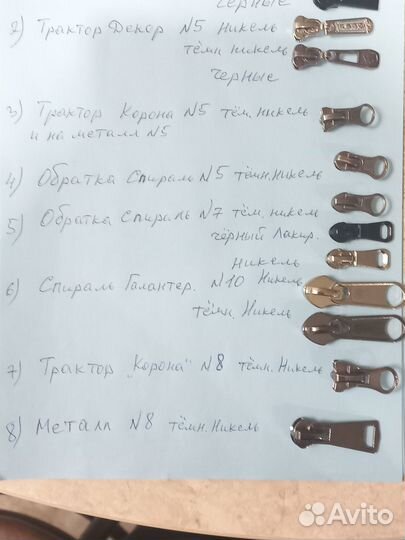 чёрные
2) Трактор Декор N5 Никель
тёмн никель
черные
3) Трактор Корона N5 тём. никель
и на металл N5
4) Обратка Спираль N5 тёмн. Никель
5) Обратка Спираль N7 тём. никель
чёрный Лакир.
никель
6) Спираль Галантер. N10 Никель
тёмн. Никель
7) Трактор "Корона" N8 тёмн. Никель
8) Металл N8 тёмн. Никель
Avito